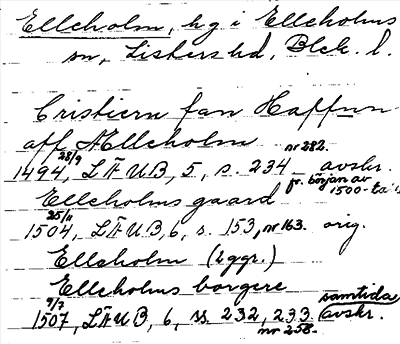 Elleholm, hg i Elleholms
sn, Listers hd, Blek. l.
Cristiern fan Haffuen
aff AElleholm nr 282.
28/9
1494, LÄUB, 5, s. 234 avskr.
fr. början av
1500-ta
Elleholms gaard
25/11
1504, LÄUB, 6, s. 153, nr 163. orig.
Elleholm (2 ggr.)
Elleholms borgere
9/7 samtida
1507, LÄUB, 6, ss 232, 233 avskr.
nr 258.